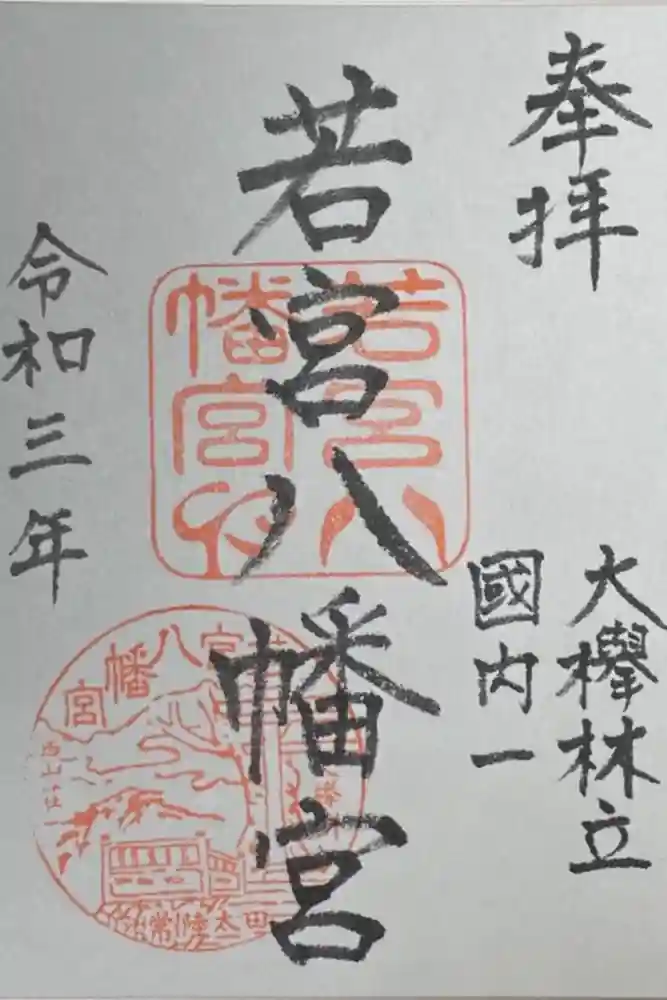 奉拝
大欅林立
國内一
若宮八幡宮
令和三年
若宮八
幡宮
八幡宮
西山荘
常陸太田